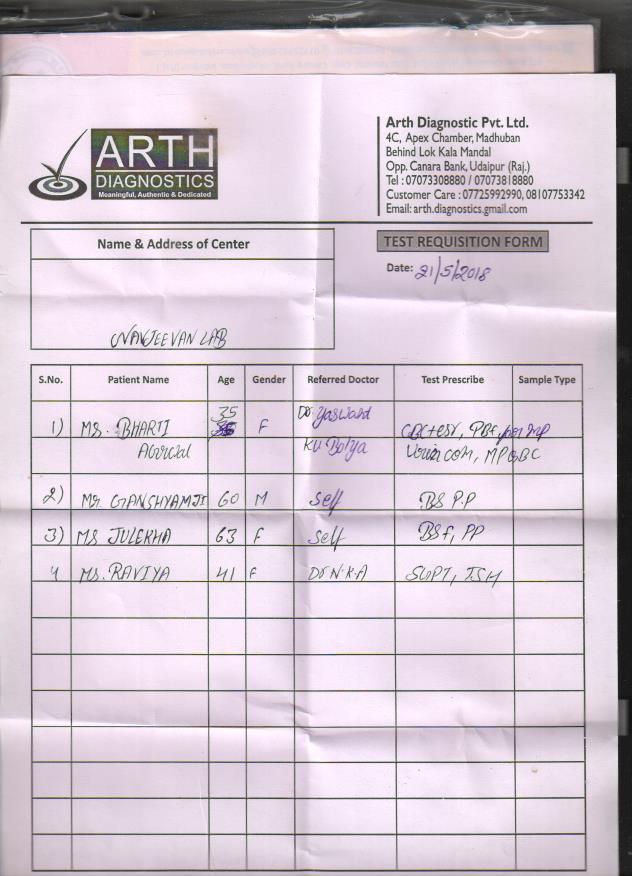 ARTH
DIAGNOSTICS
Meaningful, Authentic & Dedicated
Arth Diagnostic Pvt. Ltd.
4C, Apex Chamber, Madhuban
Behind Lok Kala Mandal
Opp. Canara Bank, Udaipur (Raj.)
Tel : 07073308880 / 07073818880
Customer Care : 07725992990, 08107753342
Email: arth.diagnostics.gmail.com
Name & Address of Center
NAVJEEVAN LAB
TEST REQUISITION FORM
Date: 21/5/2018
S.No. Patient Name Age Gender Referred Doctor Test Prescribe Sample Type
1) MS. BHARTI 35 F Dr Yaswant CBC+ESR, PBF, for MP
Agarwal Ku Bolya MPQBC
2) Mr. GANSHYAMJI 60 M Self BS PP
3) MS JULEKHA 63 F Self BSF, PP
4 MS. RAVIYA 41 F Dr N.K.A SGPT, TSH